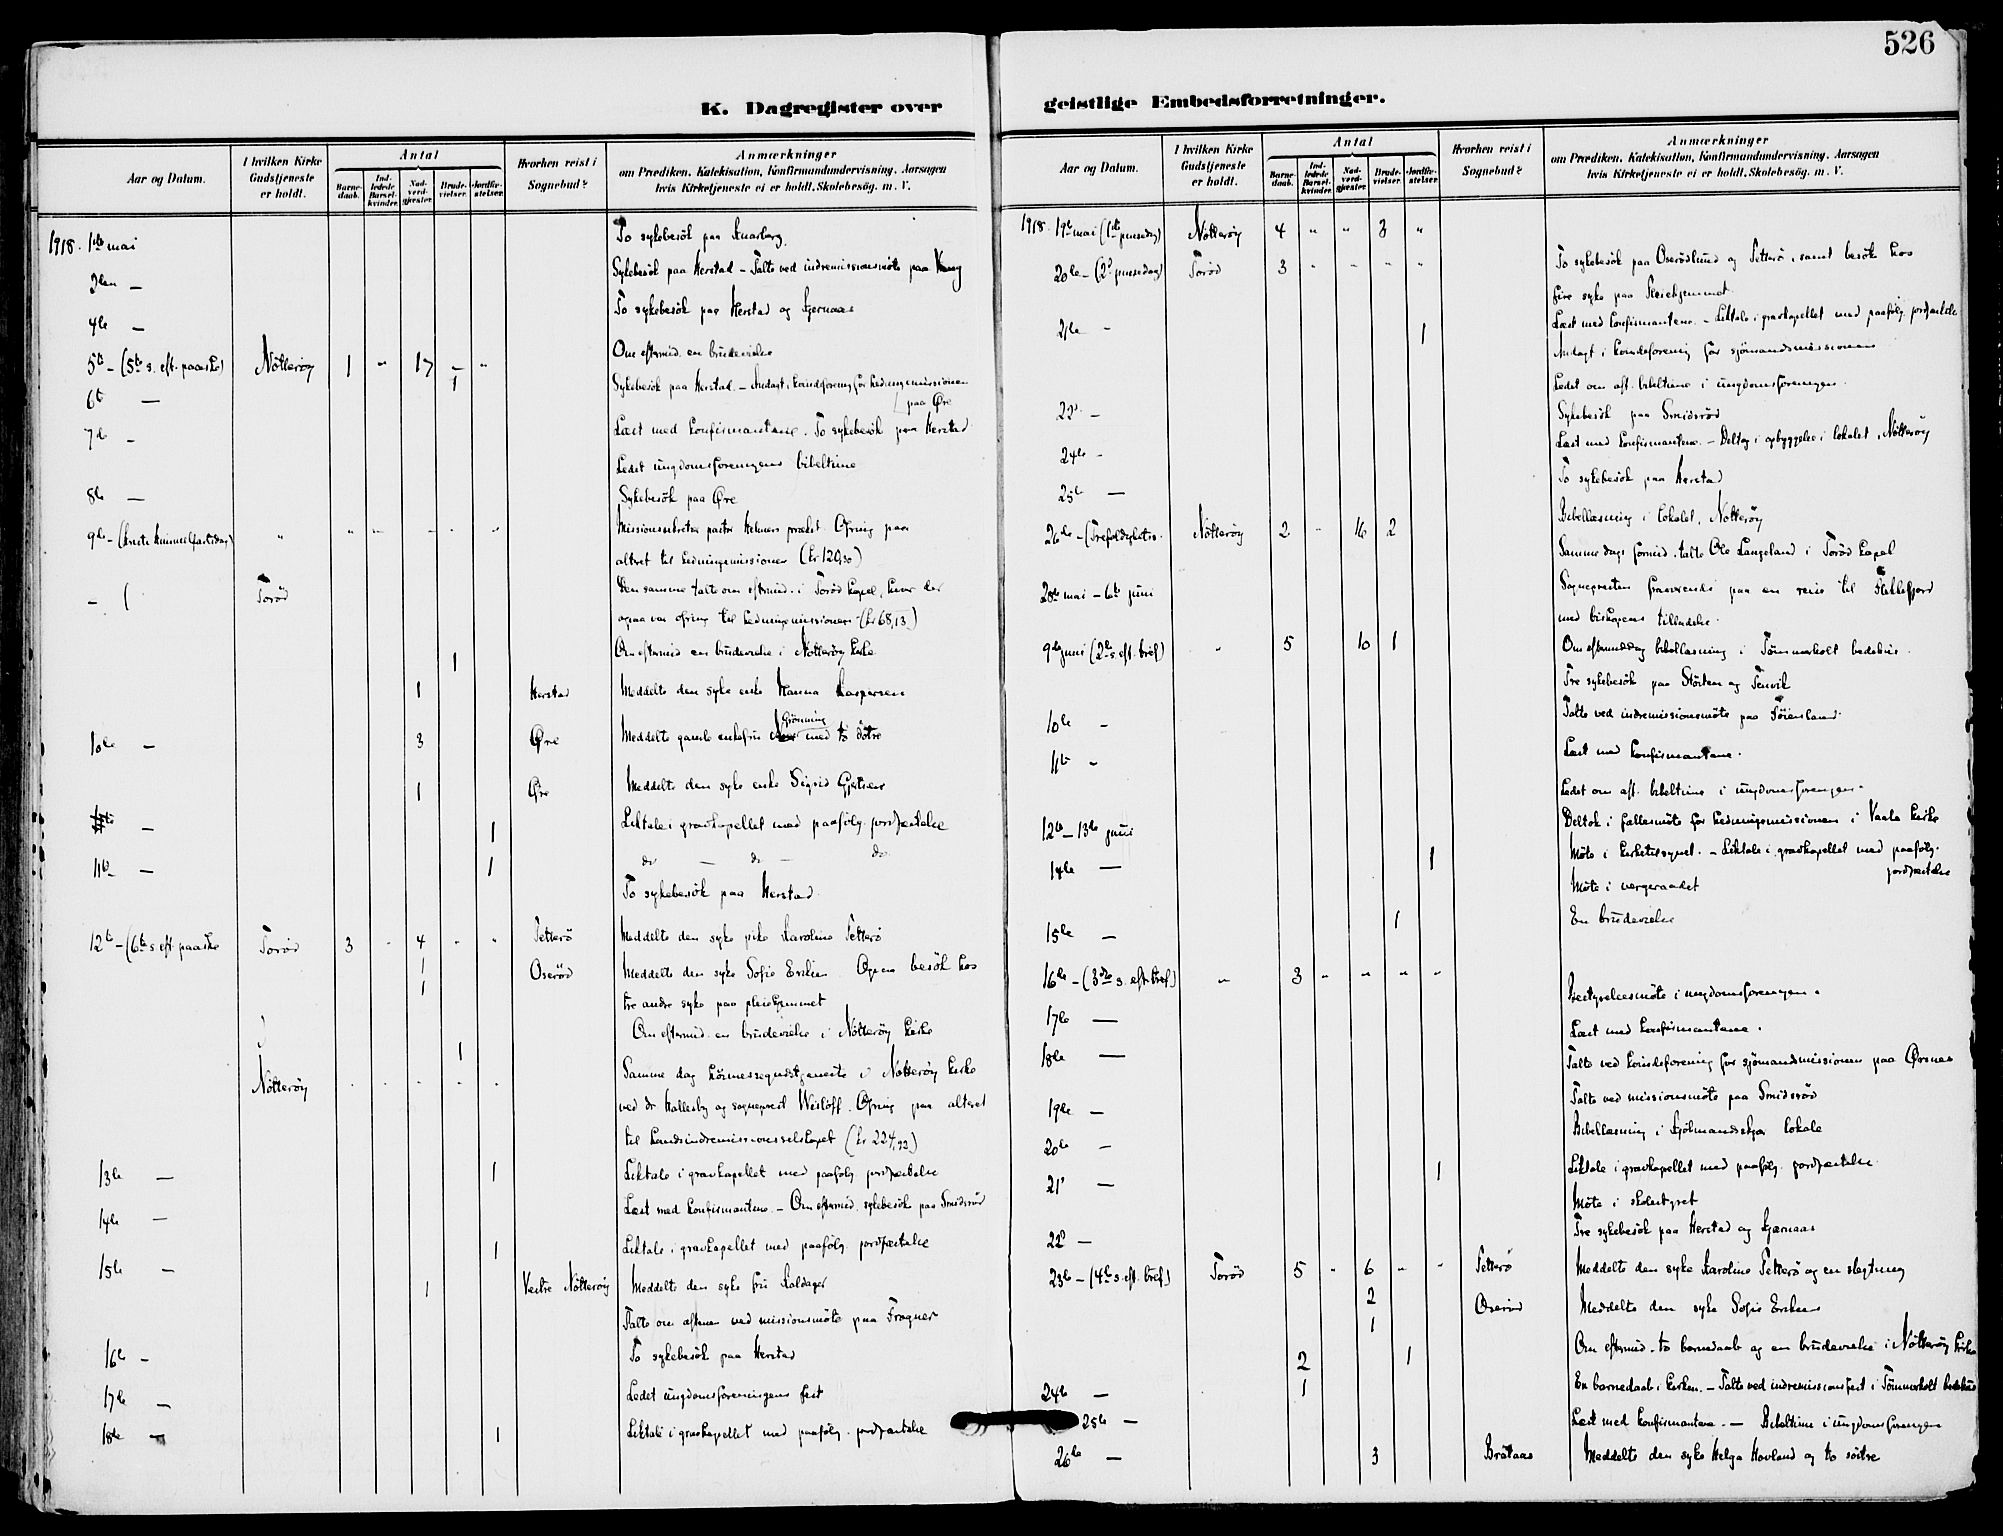 526
K. Dagregister over
geistlige Embedsforretninger.
Aar og Datum.
I hvilken Kirke Gudstjeneste er holdt.
Antal
Barne-daab.
Ind-ledede Barsel-kvinder.
Nad-verd-gjæster.
Brude-vielser.
Jordfæ-stelser.
Hvorhen reist i Sognebud?
Anmærkninger
om Prædiken, Katekisation, Konfirmandundervisning, Aarsagen
hvis Kirketjeneste ei er holdt, Skolebesög, m. V.
1918. 1ste mai To sykebesök paa
3den — Sykebesök paa Herstad – Talte ved indremissionsmöte paa
4de — To sykebesök paa Herstad og Kjernaas
5te – (5te s. eft. paaske) Nötteröy 1 " 17 – "
1 Om eftermid. en brudevielse
6te — Sykebesök paa Herstad. – Andagt i kvindeforening for hedningemissionen
paa Øre
7de – Læst med konfirmantene. To sykebesök paa Herstad
Ledet ungdomsforeningens bibeltime
8de — Sykebesök paa Øre
9de – (Kristi Himmelfartsdag) " " " " " " Missionssekretær pastor prækte. Ofring paa
altret til hedningemissionen (kr 120,30)
Torød Den samme talte om eftermid. i Torød kapel, hvor der
ogsaa var ofring til hedningemissionen (kr 68,13)
1 Om eftermid en brudevielse i Nötteröy kirke
1 Herstad Meddelte den syke enke Hanna Kaspersen
10de — 3 Øre Meddelte gamle enkefru Grönning med to dötre
1 Øre Meddelte den syke enke Sigrid Gjertsen
— 1 Liktale i gravkapellet med paafölg. jordfæstelse
11te — 1 do — do — do
To sykebesök paa Herstad
12te – (6te s. eft. paaske Torød 3 " 4 " " Tetterö Meddelte den syke pike Karoline Tetterö
1 Oseröd Meddelte den syke Sofie Eriksen. Ogsaa besök hos
1 tre andre syke paa pleiehjemmet
1 Om eftermid. en brudevielse i Nötteröy kirke
Nötteröy " " " " " Samme dag höimessegudstjeneste i Nötteröy kirke
ved dr Hallesby og sogneprest Wislöff. Ofring paa alteret
til Landsindremissionsselskapet (kr 224,92)
13de — 1 Liktale i gravkapellet med paafölg. jordfæstelse
14de — Læst med konfirmantene. – Om eftermid. sykebesök paa Smidsröd
1 Liktale i gravkapellet med paafölg. jordfæstelse
15de — 1 Vestre Nötteröy Meddelte den syke fru Kaldager
Talte om aftenen ved missionsmöte paa Frogner
16de – To sykebesök paa Herstad
17de – Ledet ungdomsforeningens fest
18de — 1 Liktale i gravkapellet med paafölg. jordfæstelse
Aar og Datum.
I hvilken Kirke Gudstjeneste er holdt.
Antal
Barne-daab.
Ind-ledede Barsel-kvinder.
Nad-verd-gjæster.
Brude-vielser.
Jordfæ-stelser.
Hvorhen reist i Sognebud?
Anmærkninger
om Prædiken, Katekisation, Konfirmandundervisning, Aarsagen
hvis Kirketjeneste ei er holdt, Skolebesög, m. V.
1918. 19de mai (1ste pinsedag) Nötteröy 4 " " 3 "
20de – (2den pinsedag) Torød 3 " " " " To sykebesök paa Oserödlund og Tetterö, samt besök hos
fire syke paa Pleiehjemmet
21de – 1 Læst med konfirmantene. – Liktale i gravkapellet med paafölg. jordfæstelse
Andagt i kvindeforening for sjömandsmissionen
Ledet om aft. bibeltime i ungdomsforeningen.
22de – Sykebesök paa Smidsröd
24de – Læst med konfirmantene. – Deltog i opbyggelse i lokalet, Nötteröy
25de — To sykebesök paa Herstad
Bibellæsning i lokalet, Nötteröy
26de – (Trefoldighetss. Nötteröy 2 " 16 2 Samme dags formid. talte Ole Langeland i Torød kapel
28de mai – 6te juni Sognepresten fraværende paa en reise til Flekkefjord
med biskopens tilladelse.
9de juni (2den s. eft. tref) " 5 10 1 Om eftermiddag bibellæsning i Tömmerholt bedehus.
Tre sykebesök paa Störten og Tenvik
10de – Talte ved indremissionsmöte paa Föiensland.
11te – Læst med konfirmantene.
Ledet om aft. bibeltime i ungdomsforeningen.
12te – 13de juni Deltok i fællesmöte for hedningemissionen i Vaale kirke
14de — 1 Möte i kirketilsynet. – Liktale i gravkapellet med paafölg.
jordfæstelse
Möte i vergeraadet
15de — 1 En brudevielse
16de – (3die s. eft. tref) " 3 " " " "
17de — Bestyrelsesmöte i ungdomsforeningen.
Læst med konfirmantene.
18de — Talte ved kvindeforening for sjömandsmissionen paa Örsnes
19de — Talte ved missionsmöte paa Smidsröd
20de – Bibellæsning i lokale
21de — 1 Liktale i gravkapellet med paafölg. jordfæstelse
Möte i skolestyret
22de — Tre sykebesök paa Herstad og Kjærnaas
23de – (4de s. eft. tref.) Torød 5 " 6 " " Tetterö Meddelte den syke Karoline Tetterö og en slegtning
2 Oseröd Meddelte den syke Sofie Eriksen
1
2 1 Om eftermid. to barnedaab og en brudevielse i Nötteröy kirke
24de — 1 En barnedaab i kirken. – Talte ved indremissionsfest i Tömmerholt bedehus
25de — Læst med konfirmantene. – Bibeltime i ungdomsforeningen
26de — 3 Brötaas Meddelte den syke Helga Hovland og to söstre